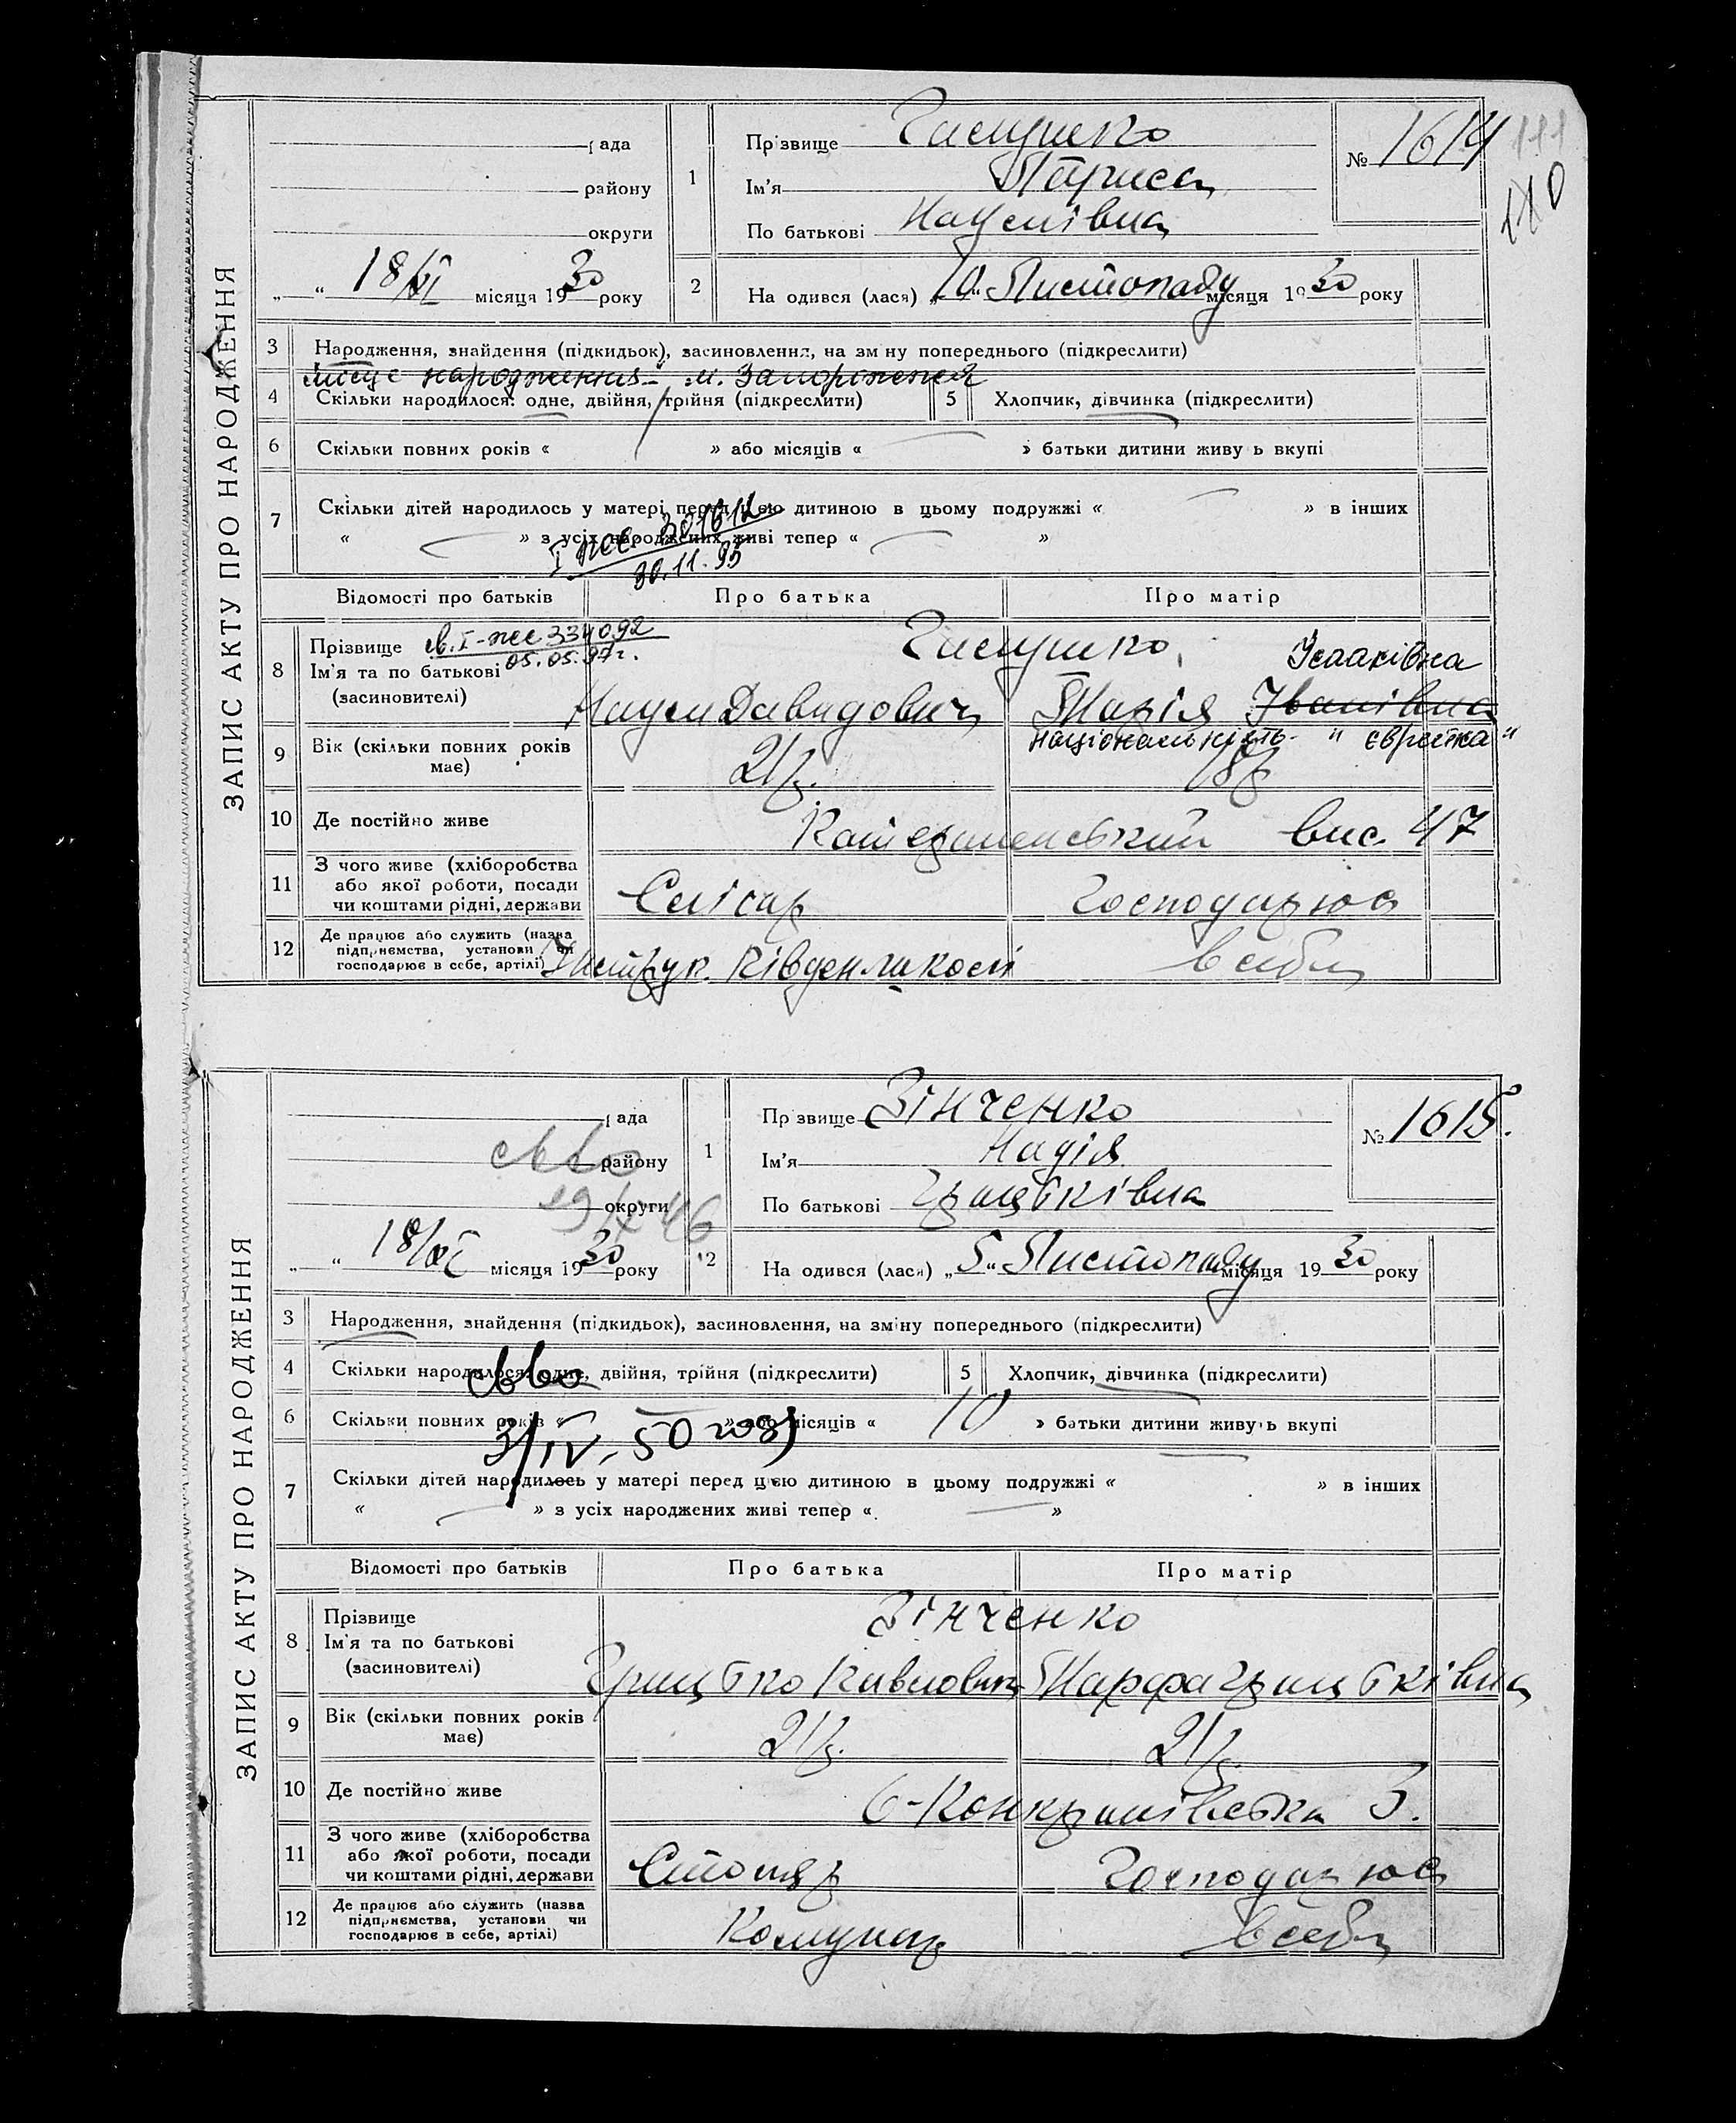 ЗАПИС АКТУ ПРО НАРОДЖЕННЯ
рада
району
округи
„ “ 18/XI місяця 1930 року
1
Прізвище
Ім'я Лариса
По батькові Наумівна
№ 1614
111
2
На одився (лася) „10“ Листопаду місяця 1930 року
3
Народження, знайдення (підкидьок), засиновлення, на зміну попереднього (підкреслити)
місце народження - м. Запоріжжя
4
Скільки народилося: одне, двійня, трійня (підкреслити)
5
Хлопчик, дівчинка (підкреслити)
6
Скільки повних років « » або місяців « » батьки дитини живуть вкупі
7
Скільки дітей народилось у матері перед цією дитиною в цьому подружжі « » в інших
« » з усіх народжених живі тепер « »
30.11.95
Відомості про батьків
Про батька
Про матір
8
Прізвище
Ім'я та по батькові
(засновителі)
св. I-жс 334092
05.05.97г.
Ісааківна
Наум Давидович
Марія Іванівна
національність - „ єврейка “
9
Вік (скільки повних років має)
21 р.
18 р.
10
Де постійно живе
вис. 47
11
З чого живе (хліборобства
або якої роботи, посади
чи коштами рідні, держави
Слісар
Господарює
12
Де працює або служить (назва
підприємства, установи чи
господарює в себе, артілі)
в себе
ЗАПИС АКТУ ПРО НАРОДЖЕННЯ
рада
району
округи
„ “ 18/XI місяця 1930 року
1
Прізвище Зінченко
Ім'я Надія
По батькові Грицьківна
№ 1615.
2
На одився (лася) „5“ Листопаду місяця 1930 року
3
Народження, знайдення (підкидьок), засиновлення, на зміну попереднього (підкреслити)
4
Скільки народилося: одне, двійня, трійня (підкреслити)
5
Хлопчик, дівчинка (підкреслити)
св-во
6
Скільки повних років « » або місяців « 10 » батьки дитини живуть вкупі
3/IV-50
7
Скільки дітей народилось у матері перед цією дитиною в цьому подружжі « » в інших
« » з усіх народжених живі тепер « »
Відомості про батьків
Про батька
Про матір
8
Прізвище
Ім'я та по батькові
(засновителі)
Зінченко
Грицько Марфа Грицьківна
9
Вік (скільки повних років має)
21 р.
21 р.
10
Де постійно живе
3.
11
З чого живе (хліборобства
або якої роботи, посади
чи коштами рідні, держави
Столяр
Господарює
12
Де працює або служить (назва
підприємства, установи чи
господарює в себе, артілі)
Комунар
в себе